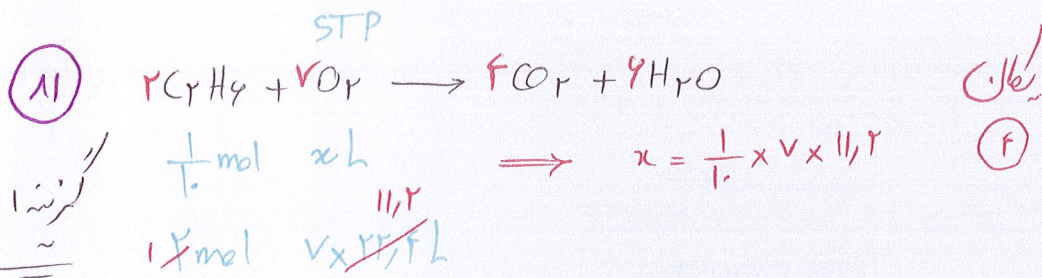 STP
۸۱ ۲C۲H۶ + ۷O۲ → ۴CO۲ + ۶H۲O یکان
۱/۱۰ mol x L ⟹ x = ۱/۱۰ × ۷ × ۱۱,۲ ۴
گزینه ۱ ۱۱,۲
۱ ۲ mol ۷ × ۲۲,۴ L